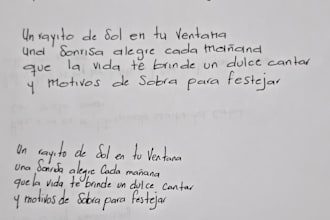 Un rayito de Sol en tu Ventana
Una Sonrisa alegre cada mañana
que la vida te brinde un dulce cantar
y Motivos de Sobra para festejar
Un rayito de Sol en tu Ventana
una Sonrisa alegre Cada mañana
que la vida te brinde un dulce cantar
y motivos de Sobra para festejar